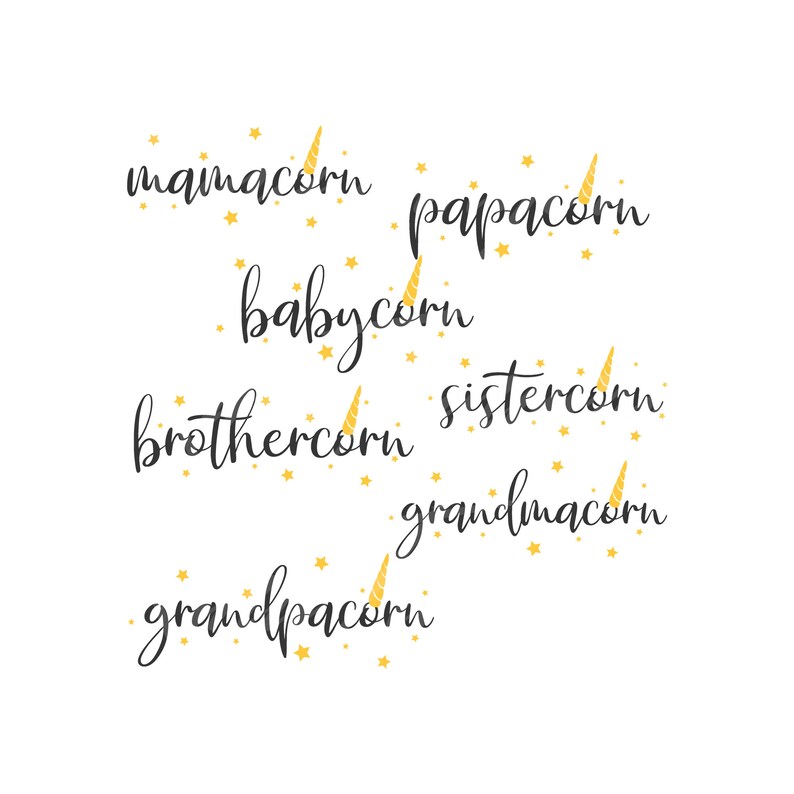 mamacorn
papacorn
babycorn
sistercorn
brothercorn
grandmacorn
grandpacorn